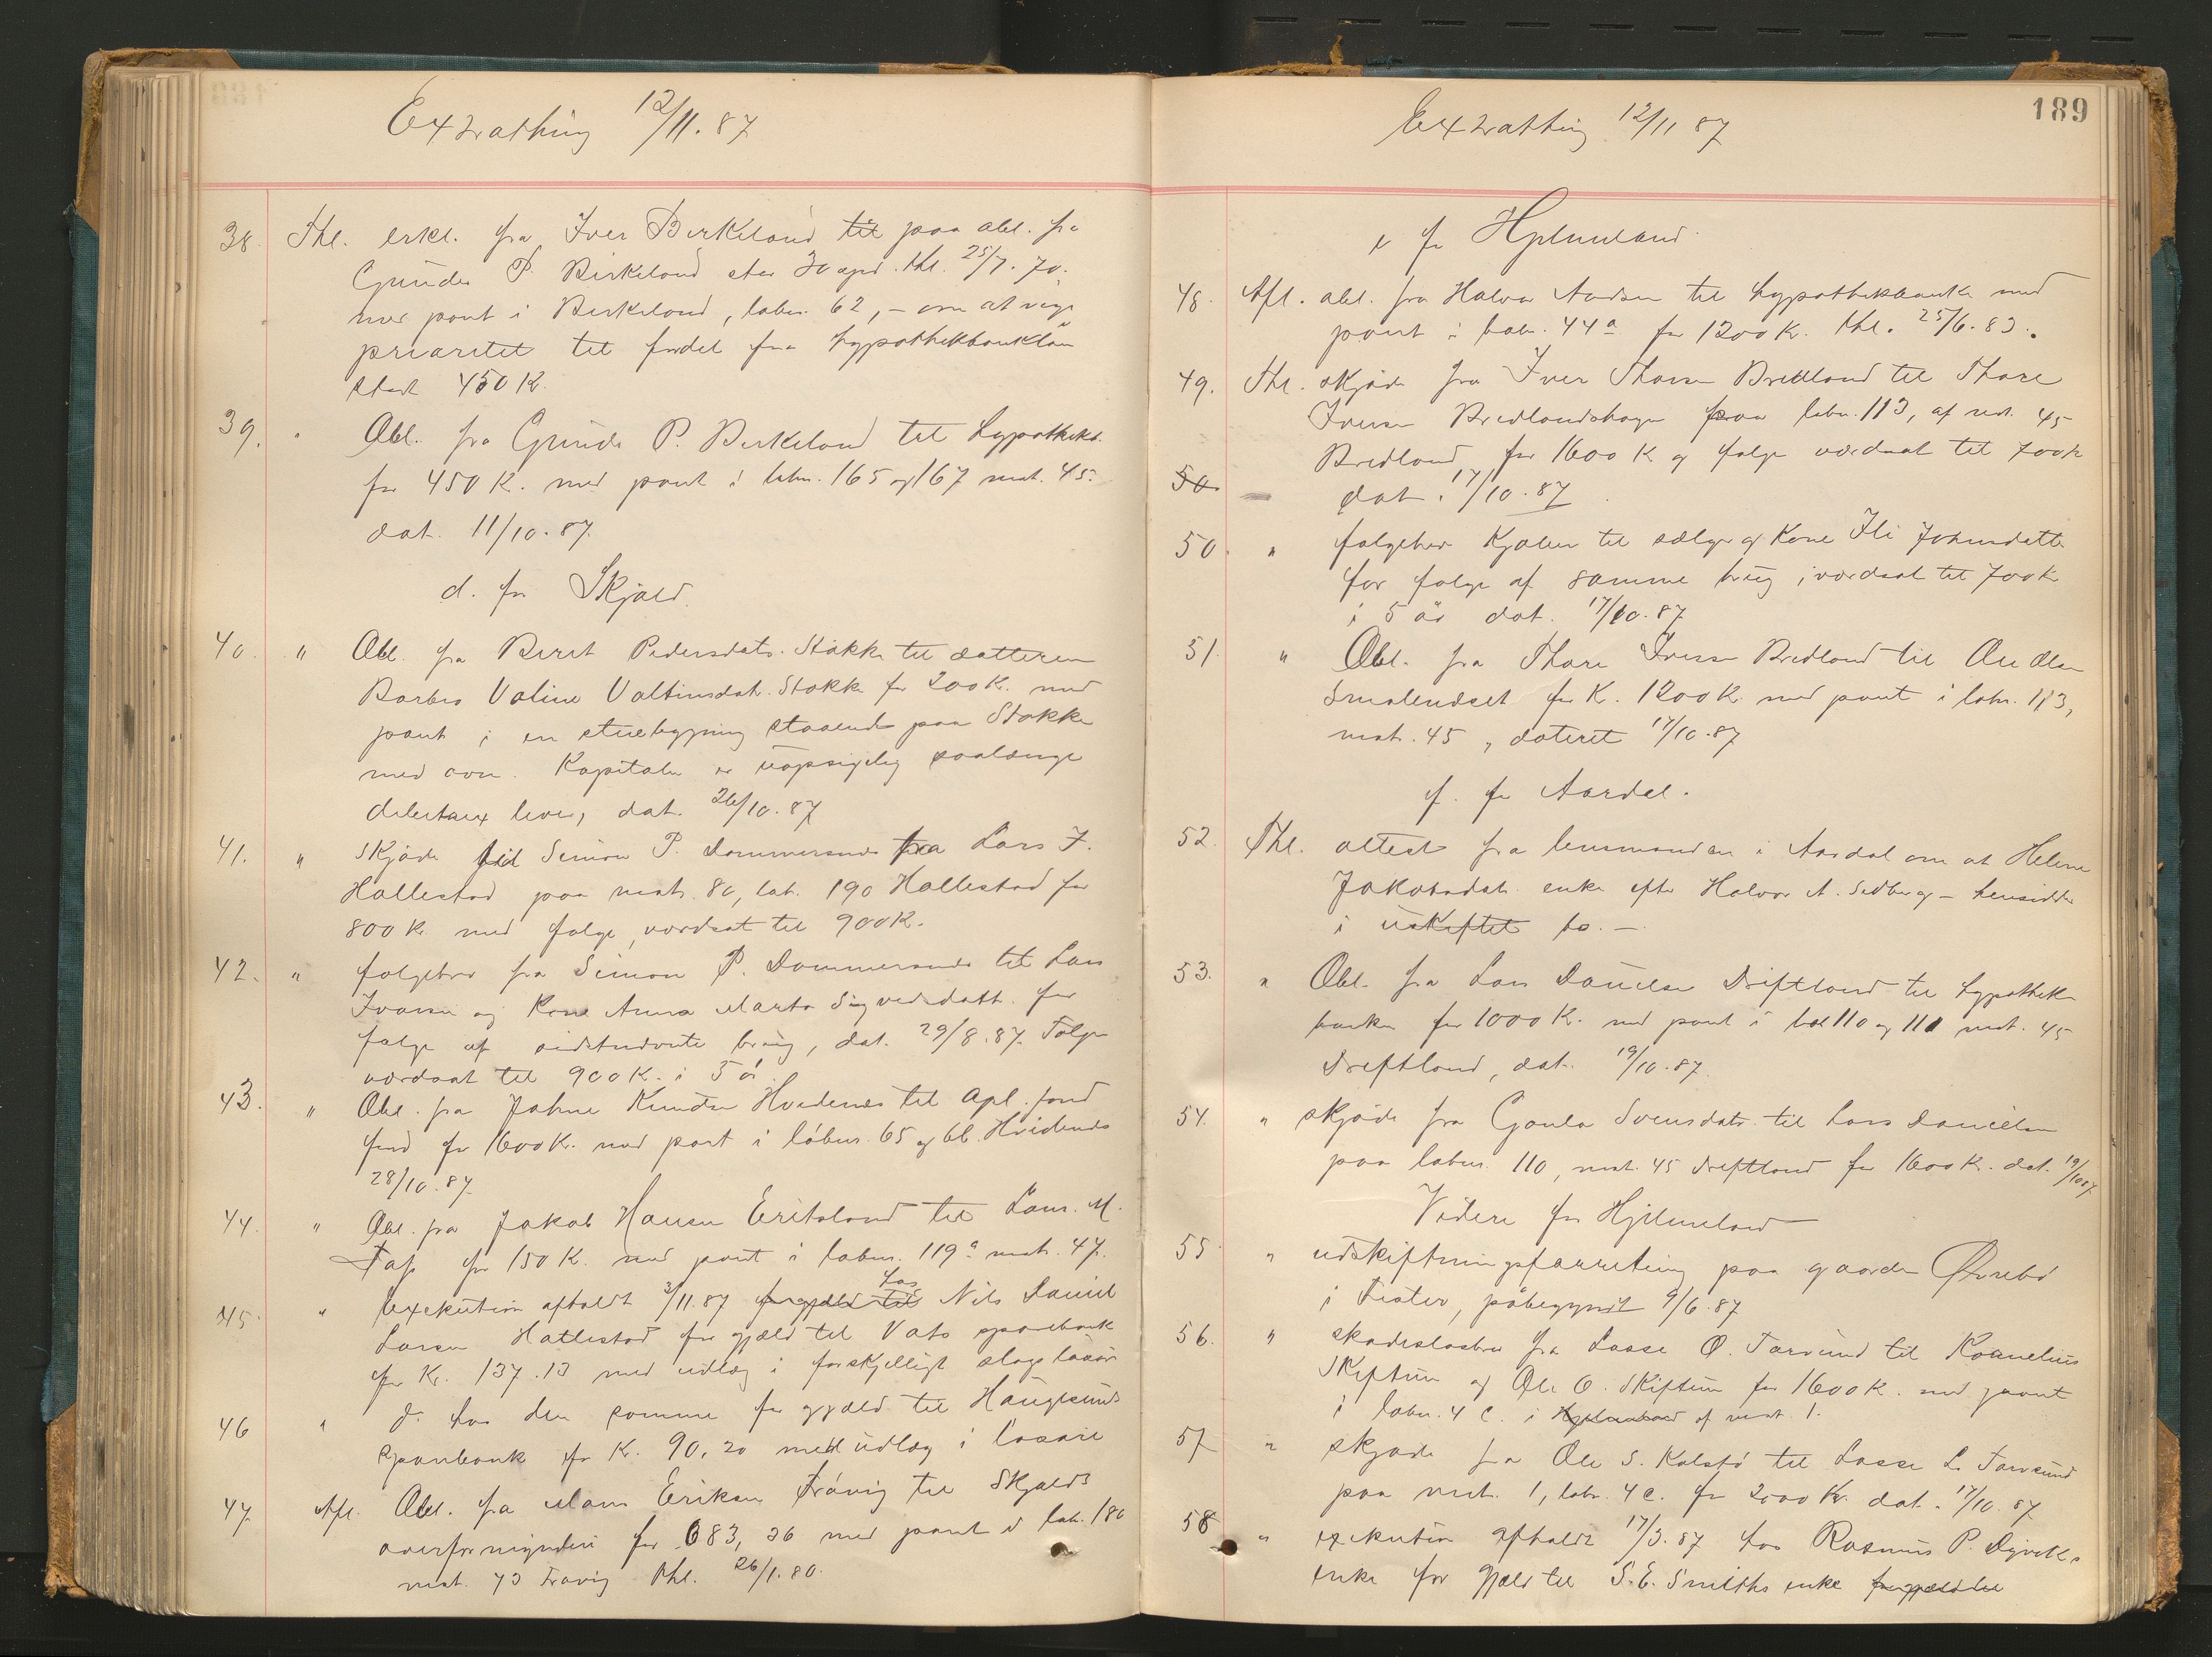 Extrathing 12/11. 87
38. Thl. erkl. fra Iver Birkeland til paa obl. fra
Gunder P. Birkeland
med pant i Birkeland, labn. 62, – om at vige
prioritet til fordel for hypothekbanklån
stort 450 K.
39. " Obl. fra Gunder P. Birkeland til hypothekb.
for 450 K. med pant i labn. 165 og 167 mat. 45.
dat. 11/10. 87.
d. for Skjold.
40. " Obl. fra Berit Pedersdatr. Stokke til datteren
Barbro Valine Valtinsdatr. Stokke for 200 K. med
pant i en stuebygning staaende paa Stokke
med ovn. Kapitalen er uopsigelig saalænge
debitaux lever, dat. 26/10. 87
41. " Skjøde til Simon P. Dommersnes fra Lars I.
Hallestad paa mat. 80, lab. 190 Hallestad for
800 Kr. med folge, værdsat til 900 K.
42. " folgebrev fra Simon P. Dommersnes til Lars
Ivarsen og Kone Anna Marta Sigvardsdatt. for
folge af sidstnævnte brug, dat. 29/8. 87. Folge
værdsat til 900 K. i 5 år
43. " Obl. fra Johne Knudsen Hvidenes til opl. fond
fond for 1600 K. med pant i løbnr. 65 og 66 Hvidenes
28/10. 87.
44. " Obl. fra Jakob Hansen Eritsland til Laur. M.
Fass for 150 K. med pant i labnr. 119 a mat. 47.
45. " Exekution afholdt 3/11. 87 for gjæld til hos Nils Daniel
Larsen Hatlestad for gjæld til Vats sparebank
for Kr. 137.13 med udlæg i forskjelligt slags løsøre
46 " do. hos den samme for gjæld til Haugesunds
sparebank for K. 90,20 med udlæg i løsøre
47. Afl. Obl. fra Mons Eriksen Frøvig til Skjolds
overformynderi for 683,26 med pant i lab. 180
mat. 73 Frøvig thl. 26/1. 80.
189
Extrathing 12/11 87
e for Hjelmeland
48. Afl. obl. fra Halvor Aadsen til hypothekbanken med
pant i labn. 44 a for 1200 K. thl. 25/6. 83.
49. Thl. skjøde fra Iver Thorsen Bredland til Thore
Iversen Bredlandshagen paa labn. 113, af mat. 45
Bredland for 1600 K og folge værdsat til 700 K
50 dat. 17/10. 87
50. " folgebrev Kjøber til sælger og Kone Ili Johnsdatter
for folge af samme brug, værdsat til 700 K
i 5 år dat. 17/10. 87
51. " Obl. fra Thore Iversen Bredland til Ole Olsen
for K. 1200 K. med pant i labn. 113,
mat. 45, dateret 17/10. 87
f. for Aardal.
52. Thl. attest fra lensmanden i Aardal om at Helene
Jakobsdatr. enke efter Halvor A. Sedberg – hensidder
i uskiftet bo. –
53. " Obl. fra Lars Danielsen Driftland til hypothek
banken for 1000 K. med pant i lab 110 og 111 mat. 45
Driftland, dat. 19/10. 87.
54. " skjøde fra Gunla Svensdatr. til Lars Danielsen
paa labnr. 110, mat. 45 Driftland for 1600 K. dat. 19/10 87.
Videre for Hjelmeland
55 " udskiftningsforretning paa gaarden Øvrebø
i Fister, påbegyndt 9/6. 87
56. " skadesløsbrev fra Lasse O. Tarsund til Kornelius
Skiftun og Ole O. Skiftun for 1600 K. med pant
i labn. 4 c. i Hjelmeland af mat. 1.
57 " skjøde fra Ole S. Kalstø til Lasse L. Tarsund
paa mat. 1, labn. 4 c. for 2000 Kr. dat. 17/10. 87
58 " exekution afholdt 17/3. 87 hos Rasmus P. Dyviks
enke for Gjæld til S. E. Smiths enke for gjæld til